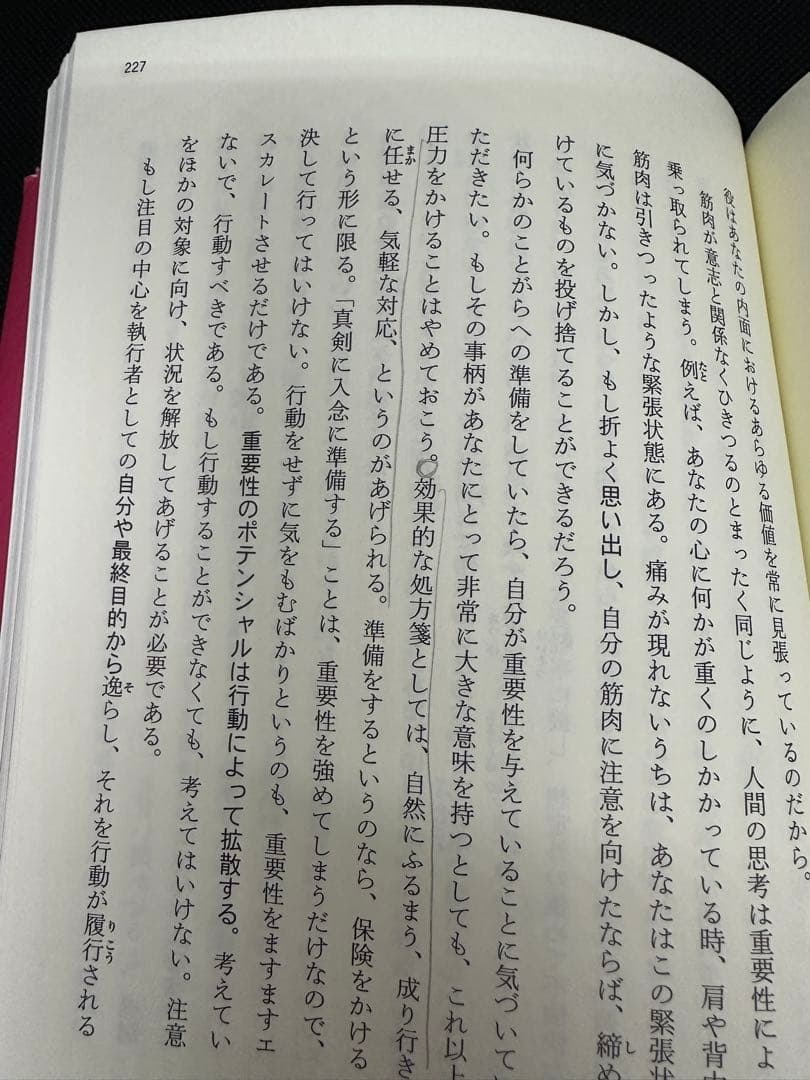 役はあなたの内面におけるあらゆる価値を常に見張っているのだから。
筋肉が意志と関係なくひきつるのとまったく同じように、人間の思考は重要性によ
乗っ取られてしまう。例えば、あなたの心に何かが重くのしかかっている時、肩や背中
筋肉は引きつったような緊張状態にある。痛みが現れないうちは、あなたはこの緊張状
に気づかない。しかし、もし折よく思い出し、自分の筋肉に注意を向けたならば、締め
けているものを投げ捨てることができるだろう。
何らかのことがらへの準備をしていたら、自分が重要性を与えていることに気づいてい
ただきたい。もしその事柄があなたにとって非常に大きな意味を持つとしても、これ以上
圧力をかけることはやめておこう。効果的な処方箋としては、自然にふるまう、成り行き
に任せる、気軽な対応、というのがあげられる。準備をするというのなら、保険をかける
という形に限る。「真剣に入念に準備する」ことは、重要性を強めてしまうだけなので、
決して行ってはいけない。行動をせずに気をもむばかりというのも、重要性をますますエ
スカレートさせるだけである。重要性のポテンシャルは行動によって拡散する。考えてい
ないで、行動すべきである。もし行動することができなくても、考えてはいけない。注意
をほかの対象に向け、状況を解放してあげることが必要である。
もし注目の中心を執行者としての自分や最終目的から逸らし、それを行動が履行される
227